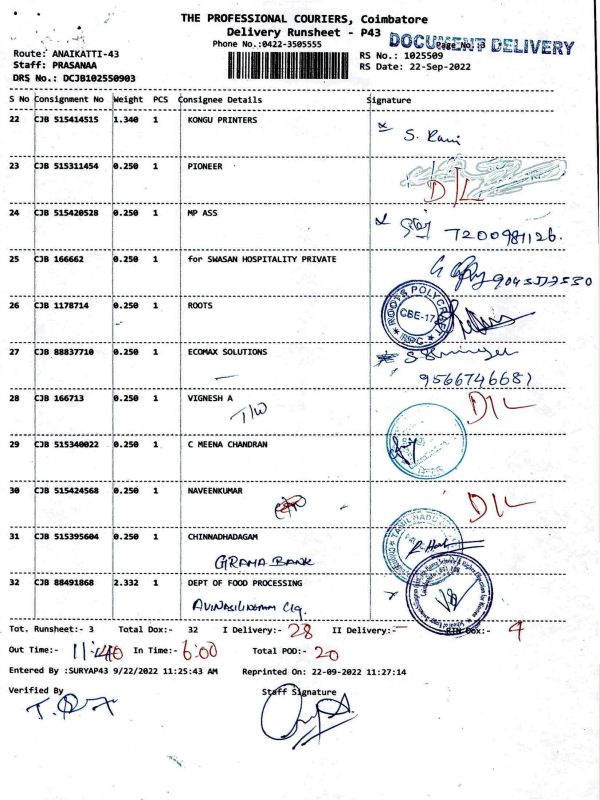 THE PROFESSIONAL COURIERS, Coimbatore
Delivery Runsheet - P43
Phone No.:0422-3505555
DOCUMENT DELIVERY
Page No. 3
Route: ANAIKATTI-43
Staff: PRASANAA
DRS No.: DCJB102550903
RS No.: 1025509
RS Date: 22-Sep-2022
S No Consignment No Weight PCS Consignee Details Signature
22 CJB 515414515 1.340 1 KONGU PRINTERS
S. Rani
23 CJB 515311454 0.250 1 PIONEER
D/L
24 CJB 515420528 0.250 1 MP ASS
7200981126.
25 CJB 166662 0.250 1 for SWASAN HOSPITALITY PRIVATE
26 CJB 1178714 0.250 1 ROOTS
ROOTS POLYCRAFT
CBE-17
RPC
27 CJB 88837710 0.250 1 ECOMAX SOLUTIONS
9566746687
28 CJB 166713 0.250 1 VIGNESH A
T/W
D/L
29 CJB 515340022 0.250 1 C MEENA CHANDRAN
30 CJB 515424568 0.250 1 NAVEENKUMAR
D/L
31 CJB 515395604 0.250 1 CHINNADHADAGAM
GRAMA BANK
TAMIL NADU
32 CJB 88491868 2.332 1 DEPT OF FOOD PROCESSING
Tot. Runsheet:- 3 Total Dox:- 32 I Delivery:- 28 II Delivery:- - RTN Dox:- 4
Out Time:- 11:40 In Time:- 6:00 Total POD:- 20
Entered By :SURYAP43 9/22/2022 11:25:43 AM Reprinted On: 22-09-2022 11:27:14
Verified By Staff Signature